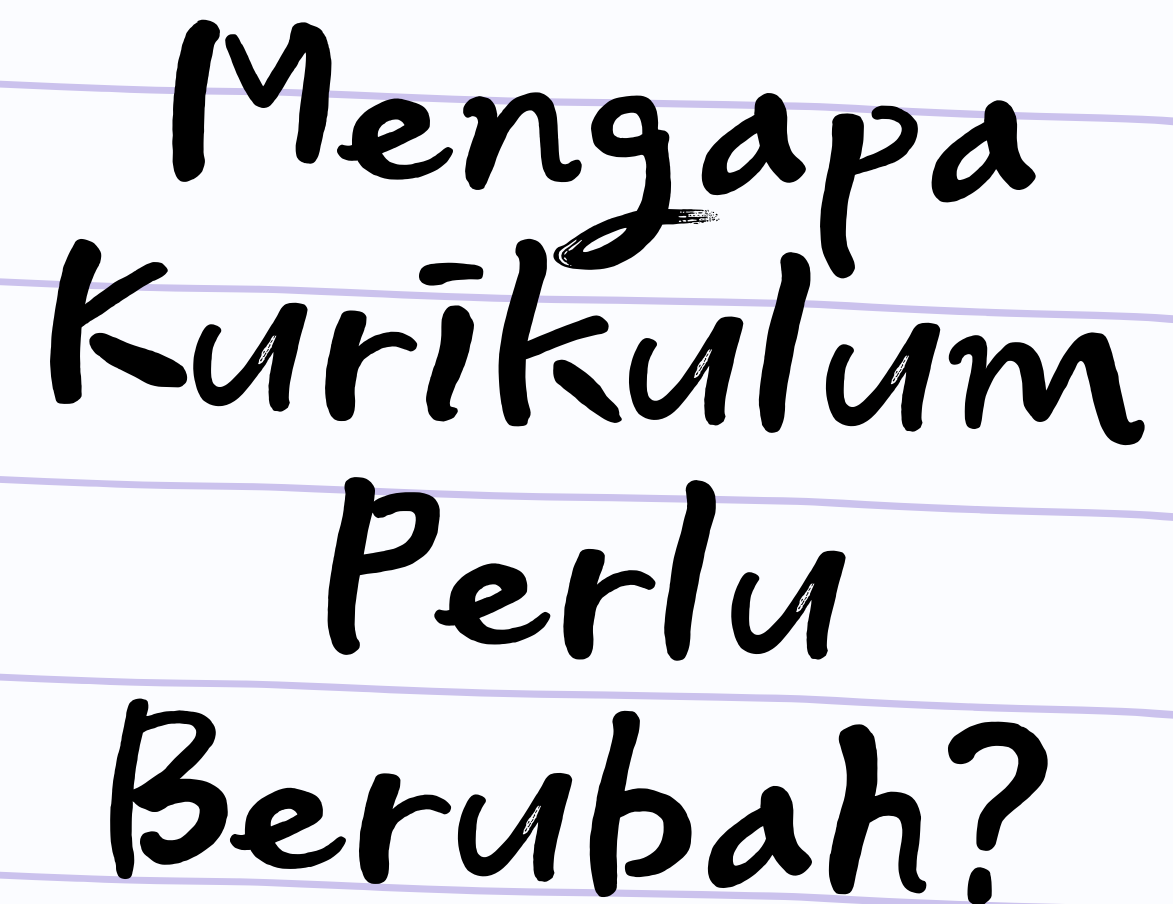 Mengapa
Kurikulum
Perlu
Berubah?